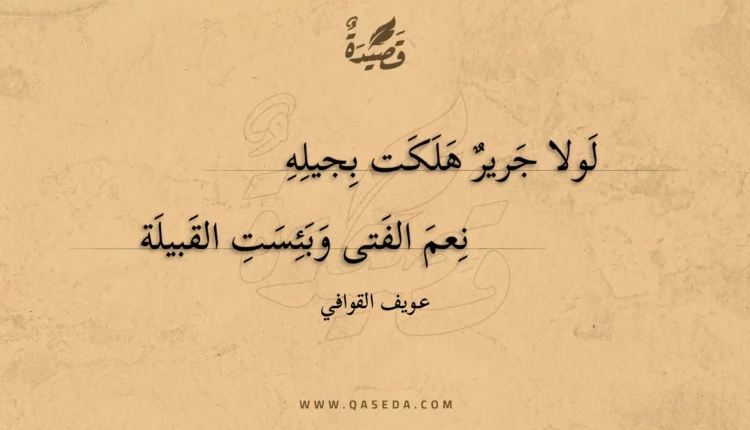 قَصِيدَةٌ
لَولا جَريرٌ هَلَكَت بِجيلِهِ
نِعمَ الفَتى وَبَئِسَتِ القَبيلَة
عويف القوافي
WWW.QASEDA.COM